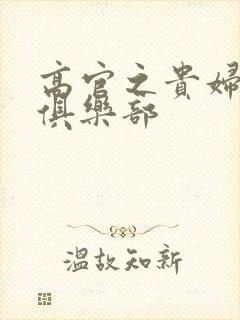 高官之貴婦
俱樂部
溫故知新